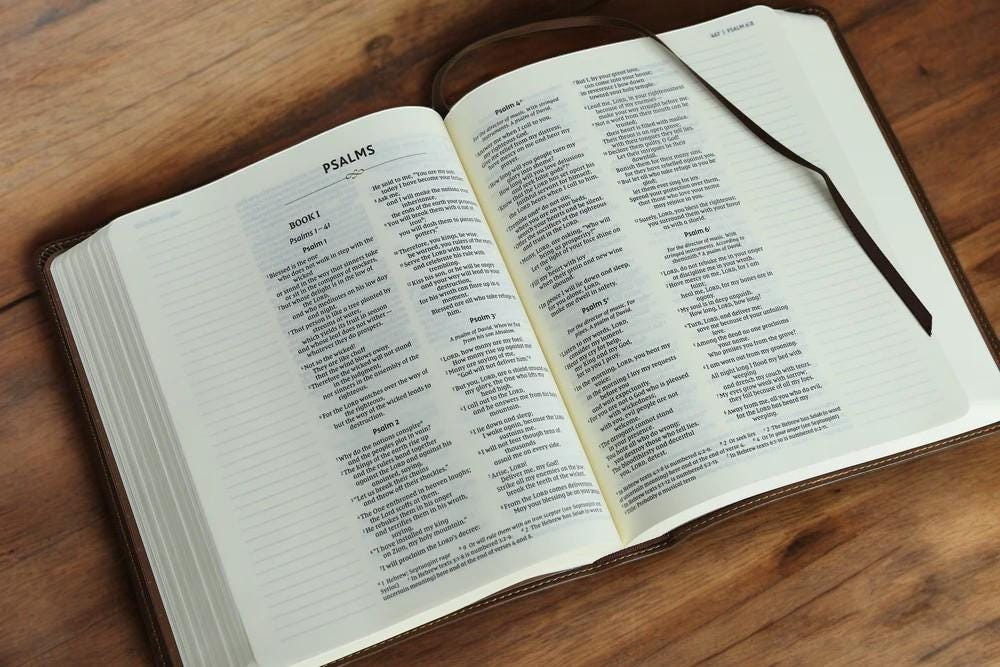 PSALMS
BOOK I
Psalms 1–41
Psalm 1
¹Blessed is the one
who does not walk in step with the
wicked
or stand in the way that sinners take
or sit in the company of mockers,
²but whose delight is in the law of
the LORD,
and who meditates on his law day
and night.
³That person is like a tree planted by
streams of water,
which yields its fruit in season
and whose leaf does not wither—
whatever they do prospers.
⁴Not so the wicked!
They are like chaff
that the wind blows away.
⁵Therefore the wicked will not stand
in the judgment,
nor sinners in the assembly of the
righteous.
⁶For the LORD watches over the way of
the righteous,
but the way of the wicked leads to
destruction.
Psalm 2
¹Why do the nations conspire
and the peoples plot in vain?
²The kings of the earth rise up
and the rulers band together
against the LORD and against his
anointed, saying,
³“Let us break their chains
and throw off their shackles.”
⁴The One enthroned in heaven laughs;
the Lord scoffs at them.
⁵He rebukes them in his anger
and terrifies them in his wrath,
saying,
⁶“I have installed my king
on Zion, my holy mountain.”
⁷I will proclaim the LORD’s decree:
He said to me, “You are my son;
today I have become your father.
⁸Ask me,
and I will make the nations your
inheritance,
the ends of the earth your possession.
⁹You will break them with a rod of
iron;
you will dash them to pieces like
pottery.”
¹⁰Therefore, you kings, be wise;
be warned, you rulers of the earth.
¹¹Serve the LORD with fear
and celebrate his rule with
trembling.
¹²Kiss his son, or he will be angry
and your way will lead to your
destruction,
for his wrath can flare up in a
moment.
Blessed are all who take refuge in
him.
Psalm 3
A psalm of David. When he fled
from his son Absalom.
¹LORD, how many are my foes!
How many rise up against me!
²Many are saying of me,
“God will not deliver him.”
³But you, LORD, are a shield around me,
my glory, the One who lifts my
head high.
⁴I call out to the LORD,
and he answers me from his holy
mountain.
⁵I lie down and sleep;
I wake again, because the LORD
sustains me.
⁶I will not fear though tens of
thousands
assail me on every side.
⁷Arise, LORD!
Deliver me, my God!
Strike all my enemies on the jaw;
break the teeth of the wicked.
⁸From the LORD comes deliverance.
May your blessing be on your people.
uncertain meaning) here and at the end of verses 4 and 8.
447 | PSALM 6:8
Psalm 4
For the director of music. With stringed
instruments. A psalm of David.
¹Answer me when I call to you,
my righteous God.
Give me relief from my distress;
have mercy on me and hear my
prayer.
²How long will you people turn my
glory into shame?
How long will you love delusions
and seek false gods?
³Know that the LORD has set apart his
faithful servant for himself;
the LORD hears when I call to him.
⁴Tremble and do not sin;
when you are on your beds,
search your hearts and be silent.
⁵Offer the sacrifices of the righteous
and trust in the LORD.
⁶Many, LORD, are asking, “Who will
bring us prosperity?”
Let the light of your face shine on
us.
⁷Fill my heart with joy
when their grain and new wine
abound.
⁸In peace I will lie down and sleep,
for you alone, LORD,
make me dwell in safety.
Psalm 5
For the director of music. For
pipes. A psalm of David.
¹Listen to my words, LORD,
consider my lament.
²Hear my cry for help,
my King and my God,
for to you I pray.
³In the morning, LORD, you hear my
voice;
in the morning I lay my requests
before you
and wait expectantly.
⁴For you are not a God who is pleased
with wickedness;
with you, evil people are not
welcome.
⁵The arrogant cannot stand
in your presence.
You hate all who do wrong;
⁶you destroy those who tell lies.
The bloodthirsty and deceitful
you, LORD, detest.
⁷But I, by your great love,
can come into your house;
in reverence I bow down
toward your holy temple.
⁸Lead me, LORD, in your righteousness
because of my enemies—
make your way straight before me.
⁹Not a word from their mouth can be
trusted;
their heart is filled with malice.
Their throat is an open grave;
with their tongues they tell lies.
¹⁰Declare them guilty, O God!
Let their intrigues be their
downfall.
Banish them for their many sins,
for they have rebelled against you.
¹¹But let all who take refuge in you be
glad;
let them ever sing for joy.
Spread your protection over them,
that those who love your name
may rejoice in you.
¹²Surely, LORD, you bless the righteous;
you surround them with your favor
as with a shield.
Psalm 6
For the director of music. With
stringed instruments. According to
sheminith. A psalm of David.
¹LORD, do not rebuke me in your anger
or discipline me in your wrath.
²Have mercy on me, LORD, for I am
faint;
heal me, LORD, for my bones are in
agony.
³My soul is in deep anguish.
How long, LORD, how long?
⁴Turn, LORD, and deliver me;
save me because of your unfailing
love.
⁵Among the dead no one proclaims
your name.
Who praises you from the grave?
⁶I am worn out from my groaning.
All night long I flood my bed with
weeping
and drench my couch with tears.
⁷My eyes grow weak with sorrow;
they fail because of all my foes.
⁸Away from me, all you who do evil,
for the LORD has heard my
weeping.